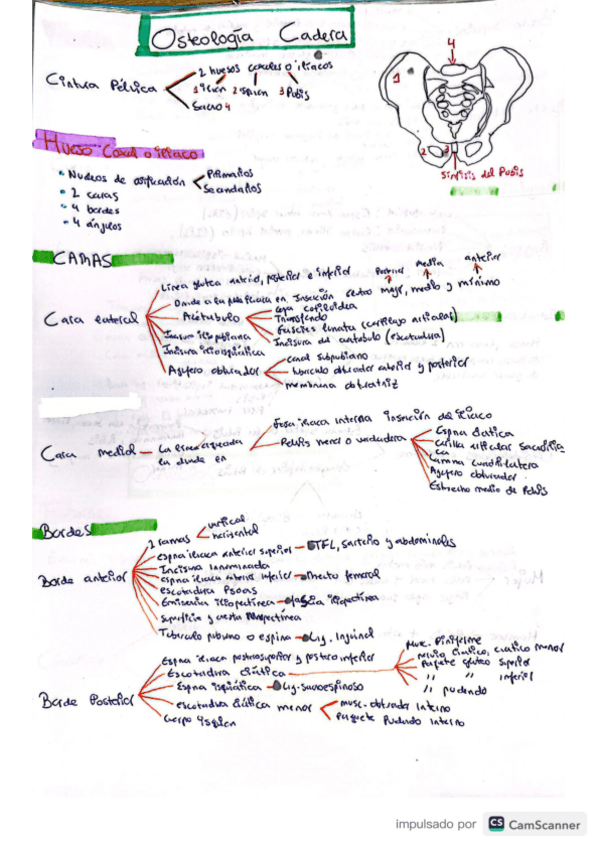 Osteología Cadera
Cintura Pélvica
2 huesos coxales o iliacos
1 Ilion 2 isquion 3 Pubis
Sacro 4
4
1
2
3
Sínfisis del Pubis
Hueso Coxal o iliaco
Nucleos de osificación
Primarios
Secundarios
2 caras
4 bordes
4 ángulos
CARAS
Cara lateral
Linea glutea anterior, posterior e inferior
posterior media anterior
Divide a la fosa iliaca en Inserción gluteo mayor, medio y mínimo
Acétabulo
Ceja cotiloidea
Transfondo
Fascies lunata (cartílago articular)
Incisura del acetabulo (escotadura)
Incisura iliopubiana
Incisura ilioisquiática
Agujero obturador
Canal subpubiano
tubérculo obturador anterior y posterior
membrana obturatriz
Cara medial
La linea arqueada
la divide en
Fosa iliaca interna inserción del iliaco
Pelvis menor o verdadera
Espina ciatica
Carilla articular sacroilia
ca
Lamina cuadrilatera
Agujero obturador
Estrecho medio de Pelvis
Bordes
Borde anterior
2 ramas
vertical
horizontal
espina iliaca anterior superior
TFL, sartorio y abdominales
Incisura Innominada
espina iliaca anterior inferior
recto femoral
escotadura Psoas
Eminencia iliopectinea
fascia iliopectinea
Superficie y cresta pectínea
Tuberculo pubiano o espina
Lig. Inguinal
Borde Posterior
Espina iliaca posterosuperior y postero inferior
Escotadura ciática
Musc. Piriforme
nervio Ciatico, cuatico menor
Paquete gluteo superior
" " inferior
" pudendo
Espina isquiática
Lig. sacroespinoso
escotadura ciática menor
musc. obturador interno
Paquete Pudendo interno
Cuerpo Isquion
impulsado por CS CamScanner